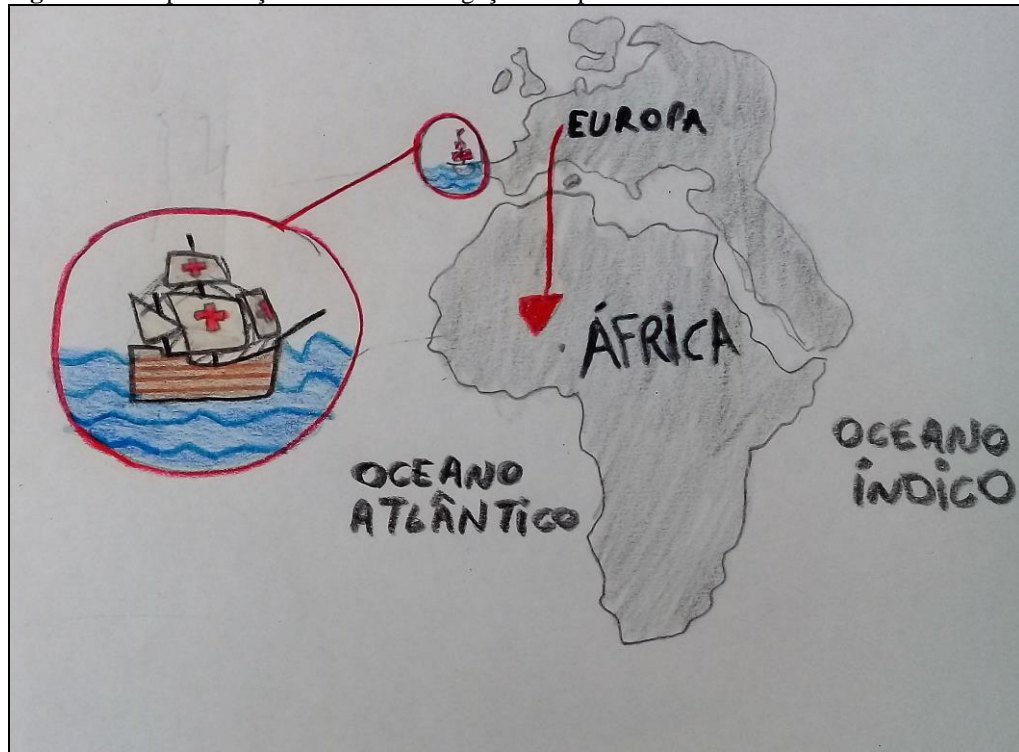 EUROPA
ÁFRICA
OCEANO
ATLÂNTICO
OCEANO
ÍNDICO